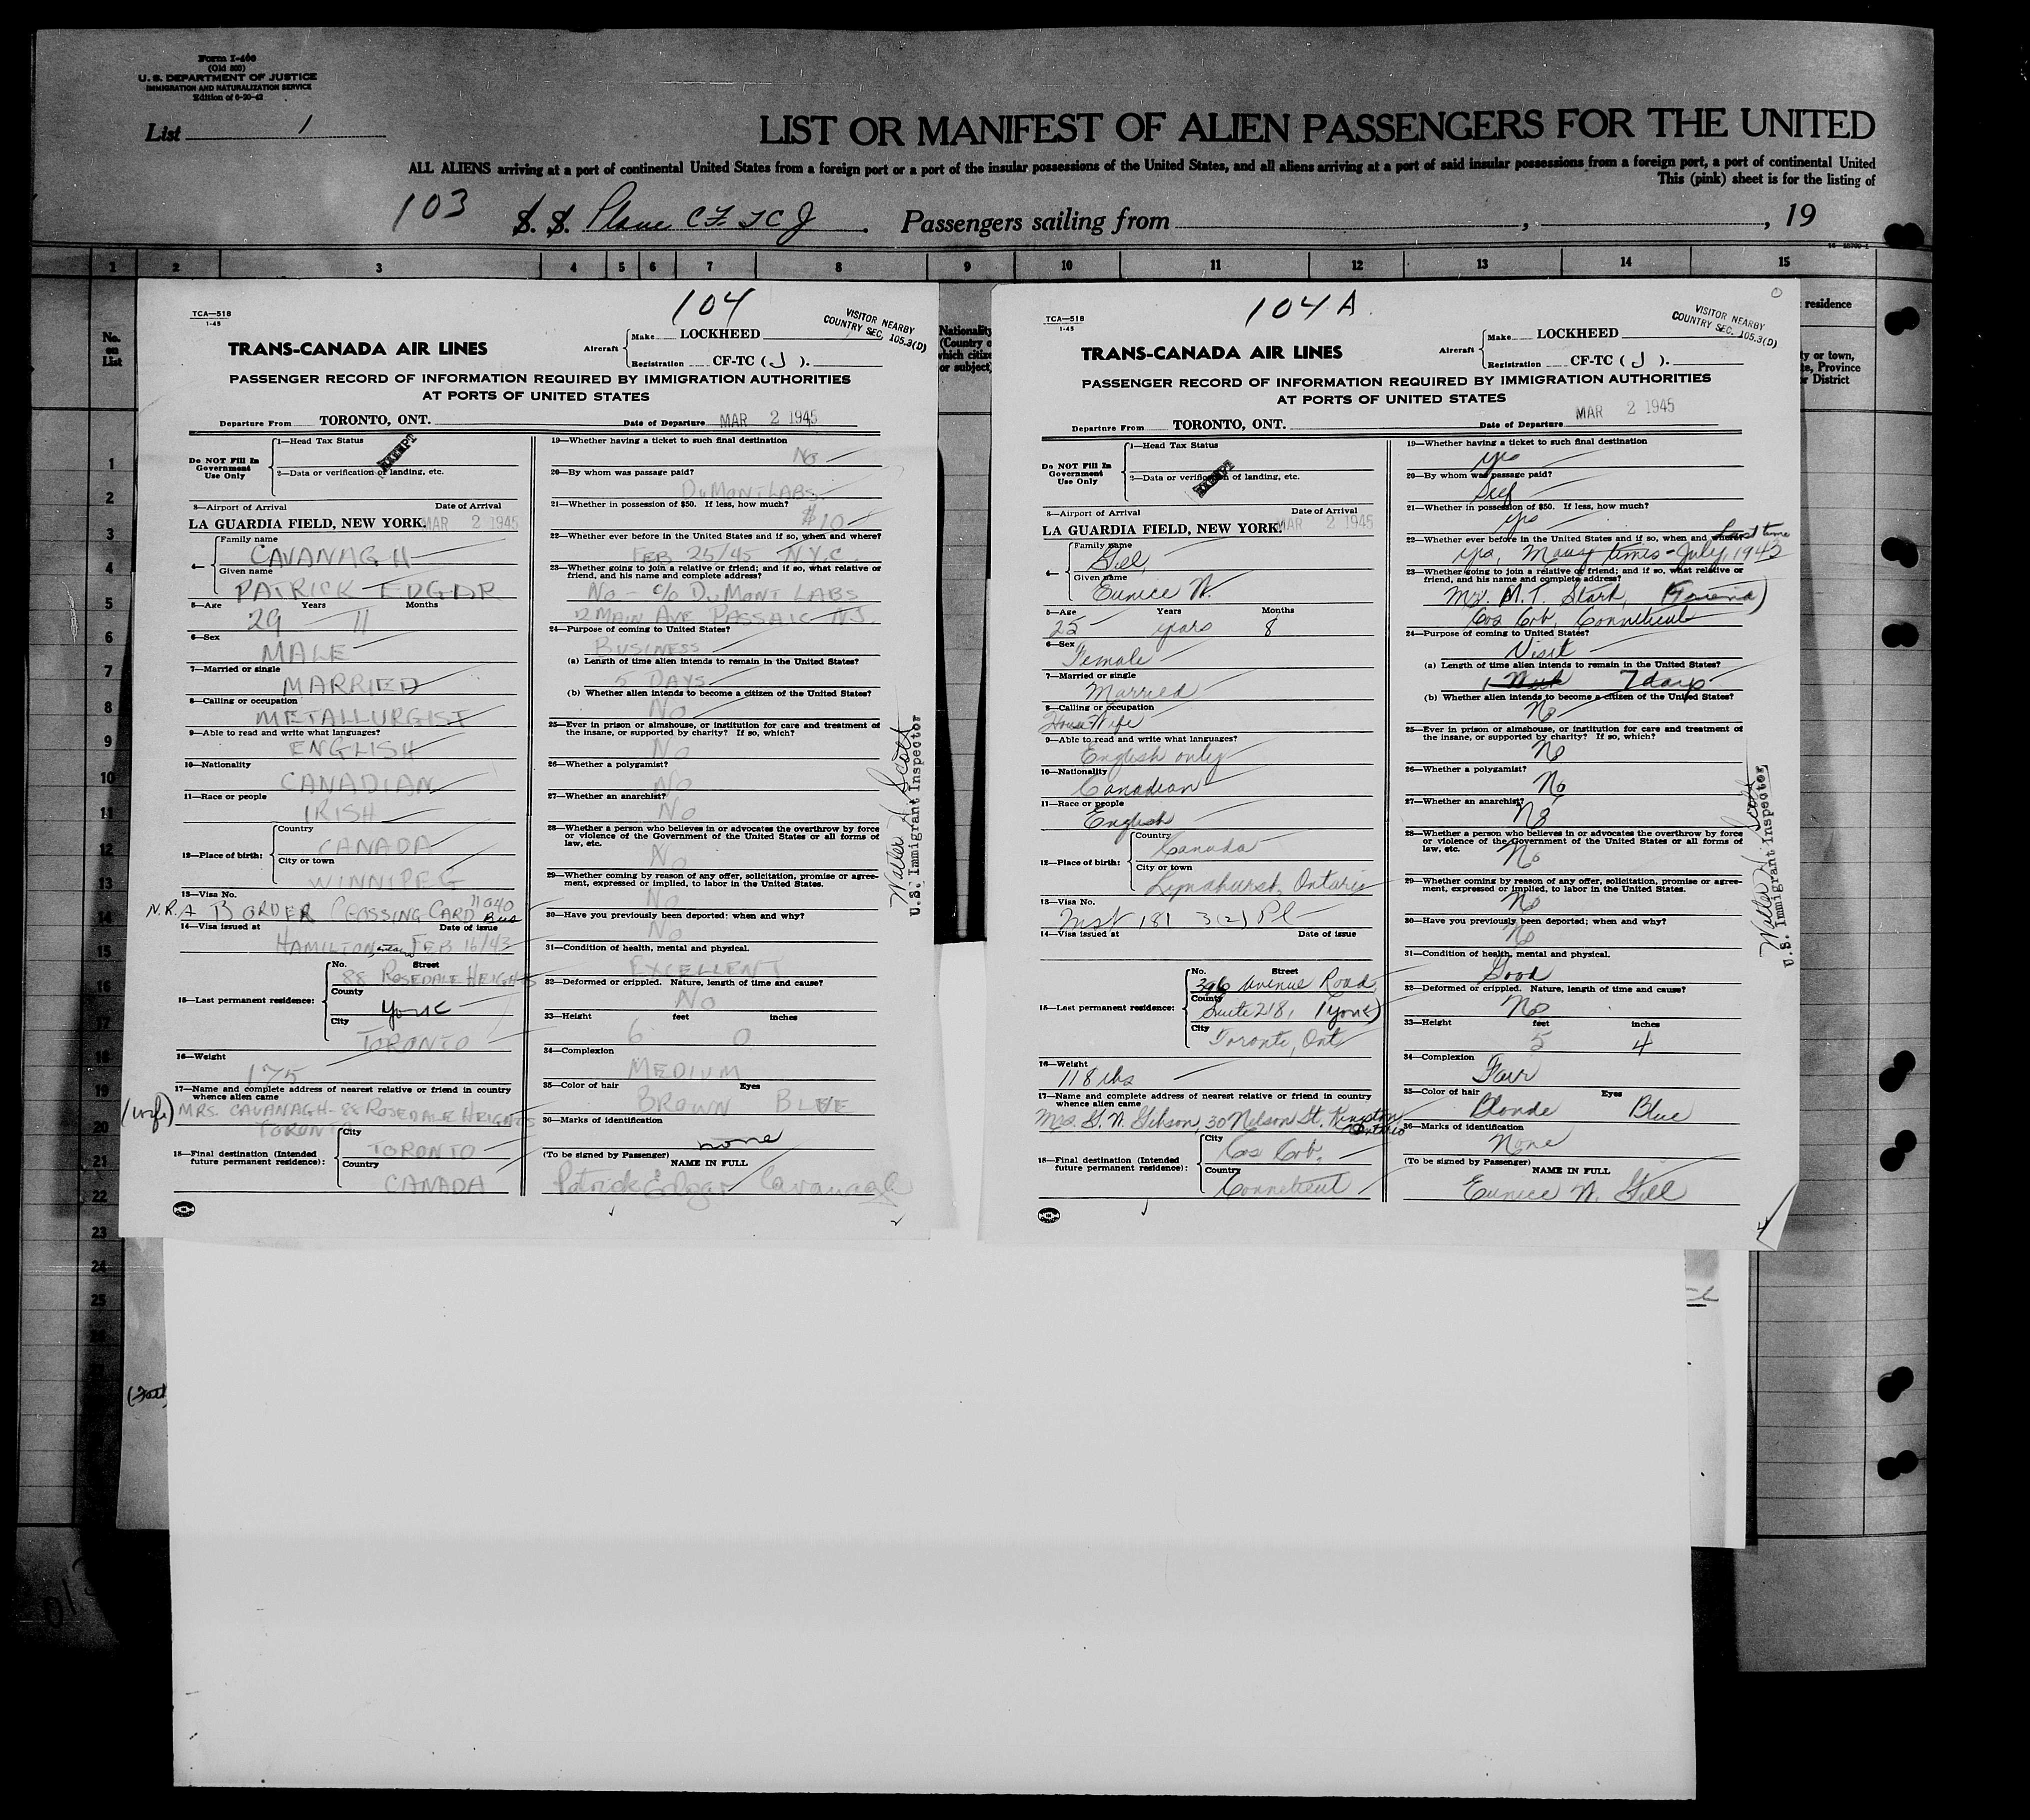 Form I-466
(Old 500)
U. S. DEPARTMENT OF JUSTICE
IMMIGRATION AND NATURALIZATION SERVICE
Edition of 6-20-42
List 1
LIST OR MANIFEST OF ALIEN PASSENGERS FOR THE UNITED
ALL ALIENS arriving at a port of continental United States from a foreign port or a port of the insular possessions of the United States, and all aliens arriving at a port of said insular possessions from a foreign port, a port of continental United
This (pink) sheet is for the listing of
103 S. S. Plane CF. TCJ. Passengers sailing from , , 19
1 2 3 4 5 6 7 8 9 10 11 12 13 14 15
No. on List
Nationality
(Country of
which citizen
or subject)
residence
City or town,
State, Province
or District
1
2
3
4
5
6
7
8
9
10
11
12
13
14
15
16
17
18
19
20
21
22
23
24
25
104
TCA—518
1-45
VISITOR NEARBY
COUNTRY SEC. 105.3(D)
TRANS-CANADA AIR LINES
Aircraft
Make LOCKHEED
Registration CF-TC ( J ).
PASSENGER RECORD OF INFORMATION REQUIRED BY IMMIGRATION AUTHORITIES
AT PORTS OF UNITED STATES
Departure From TORONTO, ONT. Date of Departure MAR 2 1945
Do NOT Fill In
Government
Use Only
1—Head Tax Status
EXEMPT
2—Data or verification of landing, etc.
3—Airport of Arrival Date of Arrival
LA GUARDIA FIELD, NEW YORK. MAR 2 1945
4—
Family name
CAVANAGH
Given name
PATRICK EDGAR
5—Age Years Months
29 11
6—Sex
MALE
7—Married or single
MARRIED
8—Calling or occupation
METALLURGIST
9—Able to read and write what languages?
ENGLISH
10—Nationality
CANADIAN
11—Race or people
IRISH
12—Place of birth:
Country
CANADA
City or town
WINNIPEG
13—Visa No.
N.R.A BORDER CROSSING CARD 11040
Bus
14—Visa issued at Date of issue
HAMILTON, FEB 16/43
15—Last permanent residence:
No. Street
88 ROSEDALE HEIGHTS
County
York
City
TORONTO
16—Weight
175
17—Name and complete address of nearest relative or friend in country
whence alien came
(wife) MRS. CAVANAGH - 88 ROSEDALE HEIGHTS
TORONTO
18—Final destination (Intended
future permanent residence):
City
TORONTO
Country
CANADA
19—Whether having a ticket to such final destination
No
20—By whom was passage paid?
DUMONT LABS.
21—Whether in possession of $50. If less, how much?
$10
22—Whether ever before in the United States and if so, when and where?
FEB 25/45 N.Y.C.
23—Whether going to join a relative or friend; and if so, what relative or
friend, and his name and complete address?
No - c/o DUMONT LABS
2 MAIN AVE PASSAIC N.J.
24—Purpose of coming to United States?
BUSINESS
(a) Length of time alien intends to remain in the United States?
5 DAYS
(b) Whether alien intends to become a citizen of the United States?
No
25—Ever in prison or almshouse, or institution for care and treatment of
the insane, or supported by charity? If so, which?
No
26—Whether a polygamist?
No
27—Whether an anarchist?
No
28—Whether a person who believes in or advocates the overthrow by force
or violence of the Government of the United States or all forms of
law, etc.
No
29—Whether coming by reason of any offer, solicitation, promise or agree-
ment, expressed or implied, to labor in the United States.
No
30—Have you previously been deported; when and why?
No
31—Condition of health, mental and physical.
EXCELLENT
32—Deformed or crippled. Nature, length of time and cause?
No
33—Height feet inches
6 0
34—Complexion
MEDIUM
35—Color of hair Eyes
BROWN BLUE
36—Marks of identification
none
(To be signed by Passenger)
NAME IN FULL
Patrick Edgar Cavanagh
Walter H. Scott
U.S. Immigrant Inspector
104 A
TCA—518
1-45
VISITOR NEARBY
COUNTRY SEC. 105.3(D)
TRANS-CANADA AIR LINES
Aircraft
Make LOCKHEED
Registration CF-TC ( J ).
PASSENGER RECORD OF INFORMATION REQUIRED BY IMMIGRATION AUTHORITIES
AT PORTS OF UNITED STATES
Departure From TORONTO, ONT. Date of Departure MAR 2 1945
Do NOT Fill In
Government
Use Only
1—Head Tax Status
2—Data or verification of landing, etc.
EXEMPT
3—Airport of Arrival Date of Arrival
LA GUARDIA FIELD, NEW YORK. MAR 2 1945
4—
Family name
Gill,
Given name
Eunice N.
5—Age Years Months
25 years 8
6—Sex
Female
7—Married or single
Married
8—Calling or occupation
House Wife
9—Able to read and write what languages?
English only
10—Nationality
Canadian
11—Race or people
English
12—Place of birth:
Country
Canada
City or town
Lyndhurst, Ontario
13—Visa No.
Mst 181 3(2) Pl
14—Visa issued at Date of issue
15—Last permanent residence:
No. Street
396 Avenue Road,
County
Suite 218, (York)
City
Toronto, Ont
16—Weight
118 lbs
17—Name and complete address of nearest relative or friend in country
whence alien came
Mrs. G. N. Gibson, 30 Nelson St. Kingston
Ontario
18—Final destination (Intended
future permanent residence):
City
Cos Cob,
Country
Conneticut
19—Whether having a ticket to such final destination
yes
20—By whom was passage paid?
Self
21—Whether in possession of $50. If less, how much?
yes
22—Whether ever before in the United States and if so, when and where?
Last time
yes, Many times - July, 1943
23—Whether going to join a relative or friend; and if so, what relative or
friend, and his name and complete address?
M. T. Stark, (Friend)
Cos Cob, Conneticut
24—Purpose of coming to United States?
Visit
(a) Length of time alien intends to remain in the United States?
1 Week 7 days
(b) Whether alien intends to become a citizen of the United States?
No
25—Ever in prison or almshouse, or institution for care and treatment of
the insane, or supported by charity? If so, which?
No
26—Whether a polygamist?
No
27—Whether an anarchist?
No
28—Whether a person who believes in or advocates the overthrow by force
or violence of the Government of the United States or all forms of
law, etc.
No
29—Whether coming by reason of any offer, solicitation, promise or agree-
ment, expressed or implied, to labor in the United States.
No
30—Have you previously been deported; when and why?
No
31—Condition of health, mental and physical.
Good
32—Deformed or crippled. Nature, length of time and cause?
No
33—Height feet inches
5 4
34—Complexion
Fair
35—Color of hair Eyes
Blonde Blue
36—Marks of identification
None
(To be signed by Passenger)
NAME IN FULL
Eunice N. Gill
Walter H. Scott
U.S. Immigrant Inspector
4